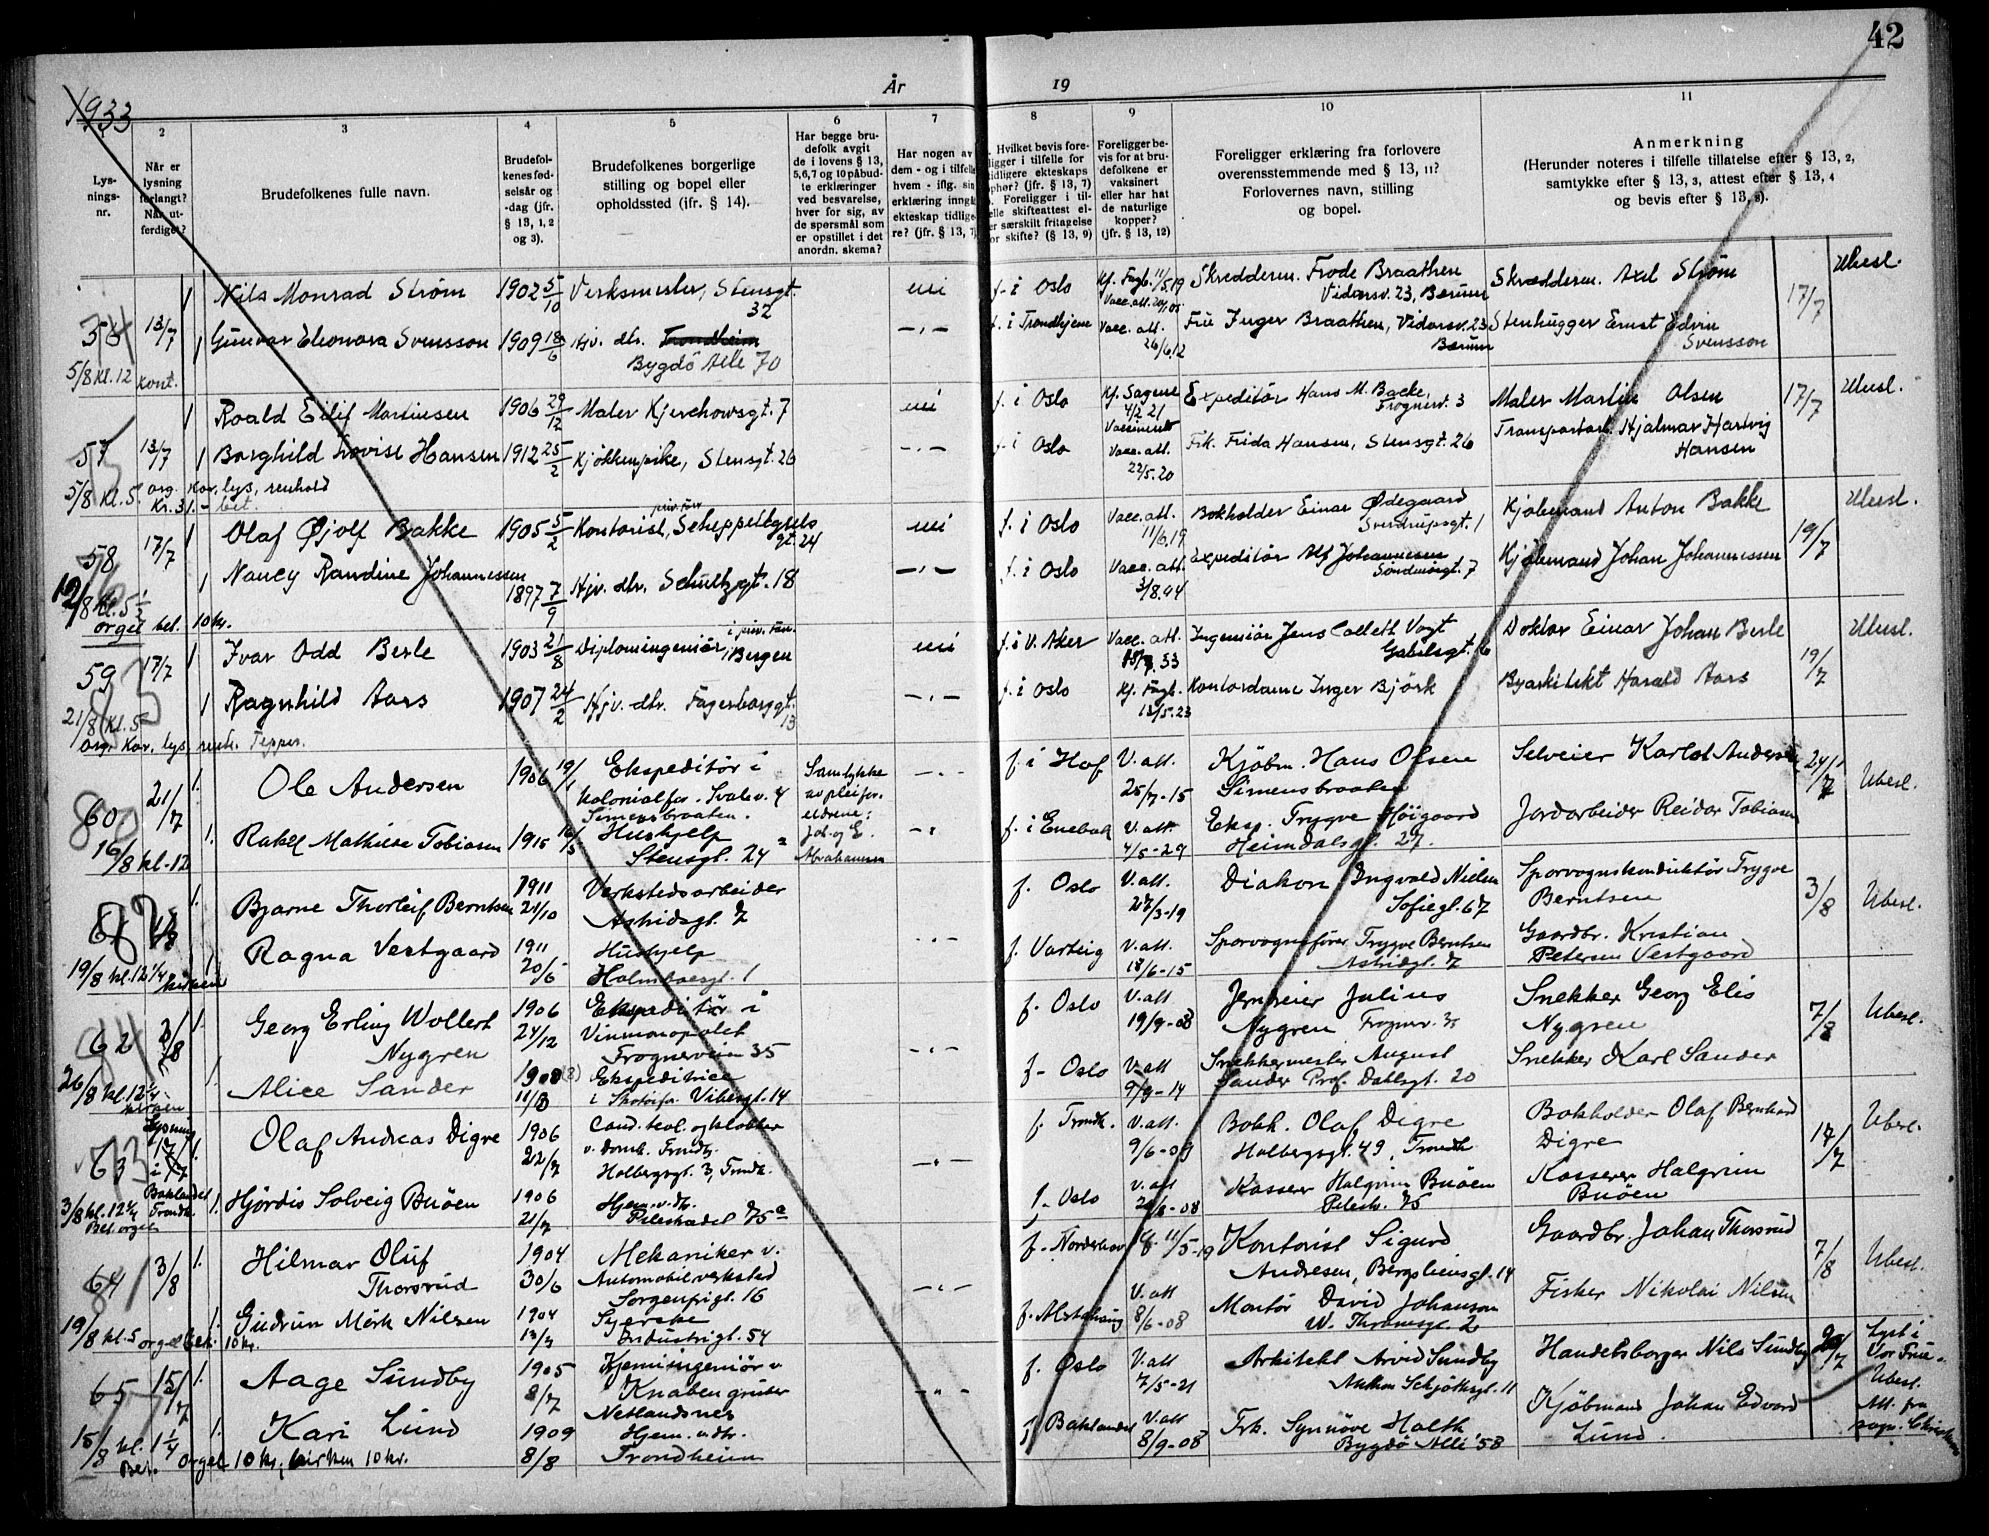 42
År 19
1933
1 2 3 4 5 6 7 8 9 10 11
Lys-
nings-
nr.
Når er
lysning
forlangt?
Når ut-
ferdiget?
Brudefolkenes fulle navn.
Brudefol-
kenes fød-
selsår og
-dag (jfr.
§ 13, 1, 2
og 3).
Brudefolkenes borgerlige
stilling og bopel eller
opholdssted (ifr. § 14).
Har begge bru-
defolk avgit
de i lovens § 13,
5,6,7 og 10 påbud-
te erklæringer
ved besvarelse,
hver for sig, av
de spørsmål som
er opstillet i det
anordn. skema?
Har nogen av
dem - og i tilfelle
hvem - iflg. sin
erklæring inngå
ekteskap tidlige-
re? (jfr. § 13, 7)
Hvilket bevis fore-
ligger i tilfelle for
tidligere ekteskaps
ophør? (jfr. § 13, 7)
Foreligger i til-
felle skifteattest el-
er særskilt fritagelse
or skifte? (§ 13, 9)
Foreligger be-
vis for at bru-
defolkene er
vaksinert
eller har hat
de naturlige
kopper?
(jfr. § 13, 12)
Foreligger erklæring fra forlovere
overensstemmende med § 13, 11?
Forlovernes navn, stilling
og bopel.
Anmerkning
(Herunder noteres i tilfelle tillatelse efter § 13, 2,
samtykke efter § 13, 3, attest efter § 13, 4
og bevis efter § 13, 8).
56 13/7 Nils Monrad Strøm 1902 5/10 Verksmester, Stensgt. 32 nei f. i Oslo Kf. Fagb. 11/5.19 Skredderm. Frode Braathen Skrædderm. Axel Strøm 17/7 Utvesl.
Vidarsv. 23, Bærum
Gunvor Eleonora Svensson 1909 18/6 Hjv. dtr. Trondheim f. i Trondhjem Vacc. att. 26/6.12 Fru Inger Braathen, Vidarsv. 23 Stenhugger Ernst Edvin
Bygdö Alle 70 Bærum Svensson
5/8 kl. 12 kont.
57 13/7 Roald Eilif Martinsen 1906 29/12 Maler Kjerchowsgt. 7 nei f. i Oslo Kf. Sagene 4/2 21 Expeditör Hans M. Backe, Maler Martin Olsen 17/7
Vaccinert Frognerv. 3
Borghild Lovise Hansen 1912 25/2 Kjøkkenpike, Stensgt. 26 f. i Oslo Vacc. att. 22/5.20 Frk. Frida Hansen, Stensgt. 26 Transportarb. Hjalmar Hartvig
Hansen
5/8 kl. 5. org. kor, lys, renhold
Kr. 31.- bet.
58 17/7 Olaf Øjolf Bakke 1905 5/2 Kontorist, Scheppelegrels gt. 24 nei f. i Oslo Vacc. att. 11/6.19 Bokholder Einar Ødegaard Kjøbmand Anton Bakke 19/7
Sverdrupsgt. 1
Nancy Randine Johannessen 1897 7/9 Hjv. dtr. Schultzgt. 18 f. i Oslo Vacc. att. 3/8.94 Expeditör Alf Johannessen Kjøbmand Johan Johannessen
Söndmörsgt. 7
12/8 kl. 5 1/2 orgel bet. 10 kr.
59 17/7 Ivar Odd Berle 1903 21/8 Diplomingeniör, Bergen nei f. i V. Aker Vacc. att. Ingeniör Jens Collett Vogt Doktor Einar Johan Berle 19/7
Gabelsgt. 16
Ragnhild Aars 1907 24/2 Hjv. dtr. Fagerborggt. 13 f. i Oslo Kf. Fagb. 13/5.23 Kontordame Inger Björk Byarkitekt Harald Aars
21/8 kl. 5 org. kor. lys, renh. Tepper.
60. 21/7 Ole Andersen 1906 19/1 Ekspeditör i Samtykke f. i Hof V. att. 25/7-15 Kjöbm. Hans Olsen Selveier Karlot Andersen 24/7 Ubesl.
kolonialfor. Svalev. 4 av pleifor- Simensbraaten
Simensbraaten. eldrene:
Rakel Mathilde Tobiasen 1915 16/5 Hushjelp Joh. og E. f. i Enebak V. att. 4/5-29 Eksp. Trygve Höigaard Jordarbeider Reidar Tobiasen
Stensgt. 24 Abrahamsen Heimdalsgt. 27.
16/8 kl. 12
61 Bjarne Thorleif Berntsen 1911 21/10 Verkstedsarbeider f. Oslo V. att. 27/3-19 Diakon Ingvald Nielsen Sporvognskonduktör Trygve 3/8 Ubesl.
Astridsgt. 7 Sofiegt. 67 Berntsen
Ragna Vestgaard 1911 20/5 Hushjelp f. Varteig V. att. 18/6-15 Sporvognsfører Trygve Berntsen Gaardbr. Kristian
Holmboesgt. 1 Astridgt. 7 Petersen Vestgaard
19/8 kl. 12 1/4 kirken
62 2/8 Georg Erling Wollert 1906 24/12 Ekspeditör i f. Oslo V. att 19/9-08 Jernbeier Julius Snekker Georg Elis 7/8 Ubesl.
Nygren Vinmonopolet Nygren Frognerv. 35 Nygren
Frognerveien 35
Alice Sander 1908 (8) 11/8 Ekspeditrice f- Oslo V. att 9/9-14 Snekkermester August Snekker Karl Sander
i Skotöifor. Vibesgt. 14 Sander Prof. Dahlsgt. 20
26/8 kl. 12 1/4 kirken
63 Lysning 17/7 i Baklandet Trondh. Olaf Andreas Digre 1906 22/7 Cand. teol. og klokker f. Trondh. V. att. 9/6-09 Bokh. Olaf Digre Bokholder Olaf Bernhard 17/7 Ubesl.
v. Domk. Trondhj. Holbergsgt. 49, Trondh Digre
Holbergsgt. 3, Trondh.
Hjördis Solveig Buöen 1906 21/7 Hjem. v. dtr. f. Oslo V. att Kasserer Halgrim Buöen Kasserer Halgrim
Pilestradet 75a Pilestr. 75 Buöen
3/8 kl. 12 1/4 Bet. orgel
64 3/8 Hilmar Oluf 1904 30/6 Mekaniker v. f. Norderhov 11/5-19 Kontorist Sigurd Gaardbr. Johan Thorsrud 7/8 Ubesl.
Thorsrud Automobilverksted Andresen, Bergsliensgt. 14
Sorgenfrigt. 16
Gudrun Mörk Nilsen 1904 13/3 Syerske f. Alstahaug V. att 8/6-08 Montör David Johanson Fisker Nikolai Nilsen
Industrigt. 54 W. Thranesgt. 2
19/8 kl. 5 orgel bet. 10 kr.
65 15/7 Aage Sundby 1905 8/7 Kjemiingeniör v f. Oslo V. att 7/5-21 Arkitekt Arvid Sundby Handelsborger Nils Sundby Lyst i
Knaben gruber Anton Schjöthsgt. 11 Vor Frue
Netlandsnes Ubesl.
Kari Lund 1909 8/8 Hjem. v. dtr. f. Baklandet V. att 8/9-08 Frk. Synnöve Holth Kjöbmand Johan Edvard Att. fra
Trondheim Bygdö Alle 58 Lund. sogn.
15/8 kl. 1 1/4 Bet. Orgel 10 kr, kirken 10 kr.